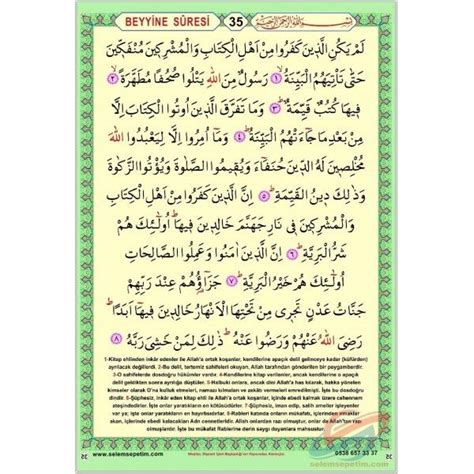 BEYYİNE SÛRESİ
35
بِسْمِ اللّٰهِ الرَّحْمٰنِ الرَّحِيمِ
لَمْ يَكُنِ الَّذِينَ كَفَرُوا مِنْ اَهْلِ الْكِتَابِ وَالْمُشْرِكِينَ مُنْفَكِّينَ
حَتّٰى تَاْتِيَهُمُ الْبَيِّنَةُ ﴿١﴾ رَسُولٌ مِنَ اللّٰهِ يَتْلُوا صُحُفًا مُطَهَّرَةً ﴿٢﴾
فِيهَا كُتُبٌ قَيِّمَةٌ ﴿٣﴾ وَمَا تَفَرَّقَ الَّذِينَ اُوتُوا الْكِتَابَ اِلَّا
مِنْ بَعْدِ مَا جَٓاءَتْهُمُ الْبَيِّنَةُ ﴿٤﴾ وَمَٓا اُمِرُٓوا اِلَّا لِيَعْبُدُوا اللّٰهَ
مُخْلِصِينَ لَهُ الدِّينَ حُنَفَٓاءَ وَيُقِيمُوا الصَّلٰوةَ وَيُؤْتُوا الزَّكٰوةَ
وَذٰلِكَ دِينُ الْقَيِّمَةِ ﴿٥﴾ اِنَّ الَّذِينَ كَفَرُوا مِنْ اَهْلِ الْكِتَابِ
وَالْمُشْرِكِينَ فِي نَارِ جَهَنَّمَ خَالِدِينَ فِيهَا اُولٰٓئِكَ هُمْ
شَرُّ الْبَرِيَّةِ ﴿٦﴾ اِنَّ الَّذِينَ اٰمَنُوا وَعَمِلُوا الصَّالِحَاتِ
اُولٰٓئِكَ هُمْ خَيْرُ الْبَرِيَّةِ ﴿٧﴾ جَزَٓاؤُهُمْ عِنْدَ رَبِّهِمْ
جَنَّاتُ عَدْنٍ تَجْرِي مِنْ تَحْتِهَا الْاَنْهَارُ خَالِدِينَ فِيهَٓا اَبَدًا
رَضِيَ اللّٰهُ عَنْهُمْ وَرَضُوا عَنْهُ ذٰلِكَ لِمَنْ خَشِيَ رَبَّهُ ﴿٨﴾
1-Kitap ehlinden inkâr edenler ile Allah'a ortak koşanlar, kendilerine apaçık delil gelinceye kadar (küfürden)
ayrılacak değillerdi. 2-Bu delil, tertemiz sahifeleri okuyan, Allah tarafından gönderilen bir peygamberdir.
3-O sahifelerde dosdoğru hükümler vardır. 4-Kendilerine kitap verilenler, ancak kendilerine o apaçık
delil geldikten sonra ayrılığa düştüler. 5-Halbuki onlara, ancak dini Allah'a has kılarak, hakka yönelen
kimseler olarak O'na kulluk etmeleri, namazı kılmaları ve zekatı vermeleri emredilmişti. İşte bu dosdoğru
dindir. 6-Şüphesiz, inkar eden kitap ehli ile Allah'a ortak koşanlar, içinde ebedi kalmak üzere cehennem
ateşindedirler. İşte onlar yaratıkların en kötüsüdürler. 7-Şüphesiz, iman edip, salih ameller işleyenler
var ya; işte onlar yaratıkların en hayırlısıdırlar. 8-Rableri katında onların mükafatı, içlerinden ırmaklar
akan, içlerinde ebedi kalacakları Adn cennetleridir. Allah onlardan razı olmuş, onlar da Allah'tan razı
olmuşlardır. İşte bu mükafat Rablerine derin saygı duyanlara mahsustur.
www.selemsepetim.com
0538 661 33 37